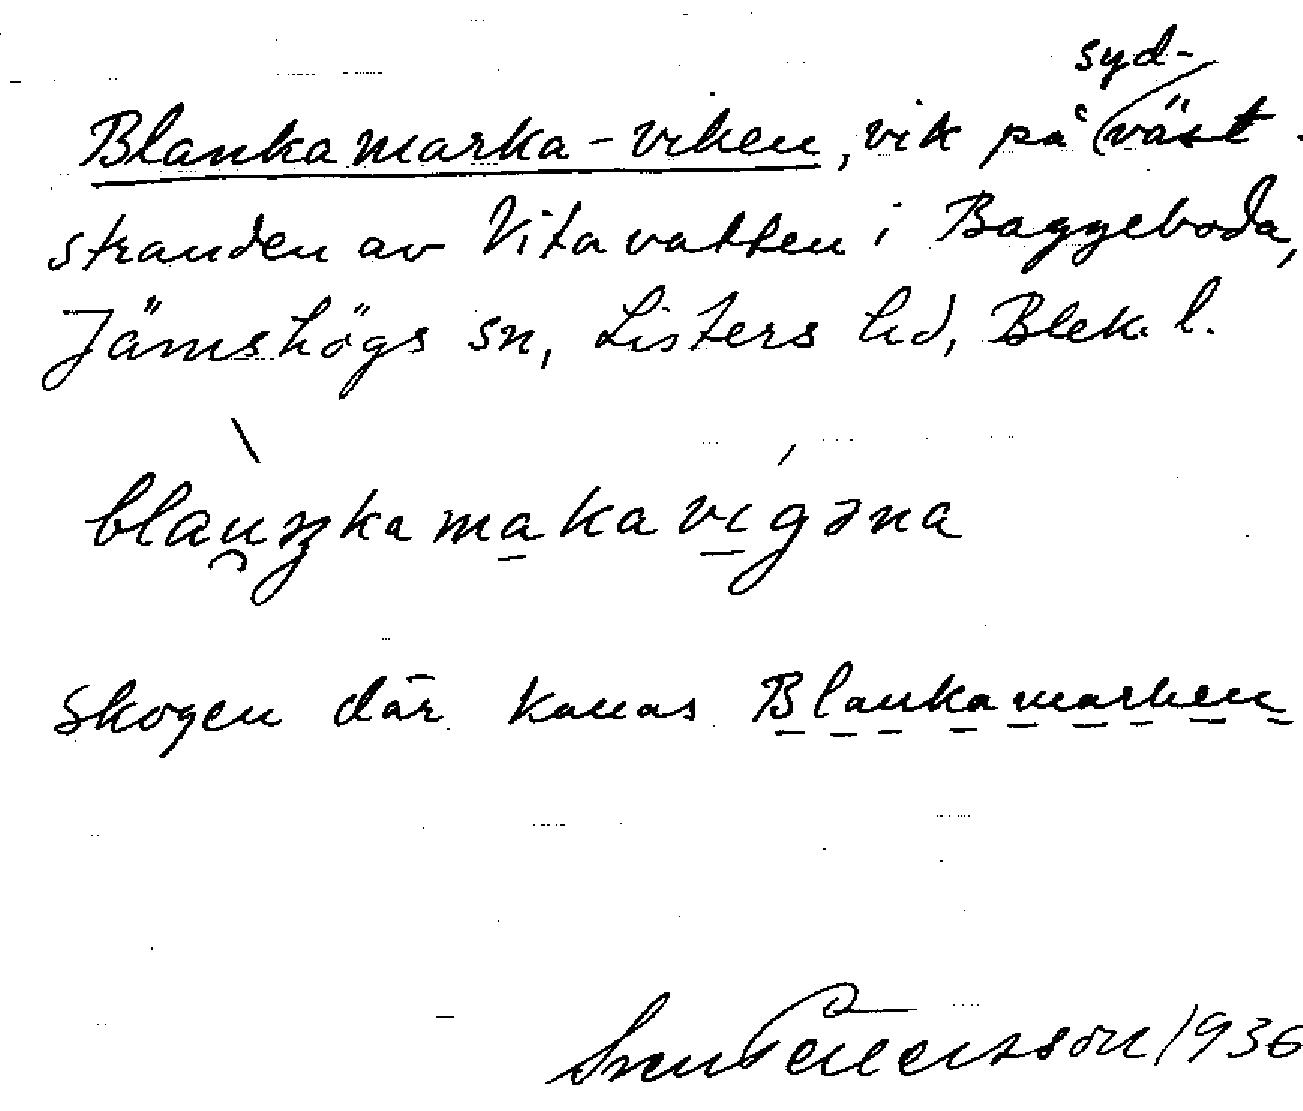 Blankamarka-viken, vik på syd-väst-
stranden av Vitavatten i Baggeboda,
Jämshögs sn, Listers hd, Blek. l.
blau̯ŋkamakavigəna
Skogen där kallas Blankamarken
Sven Pettersson 1936